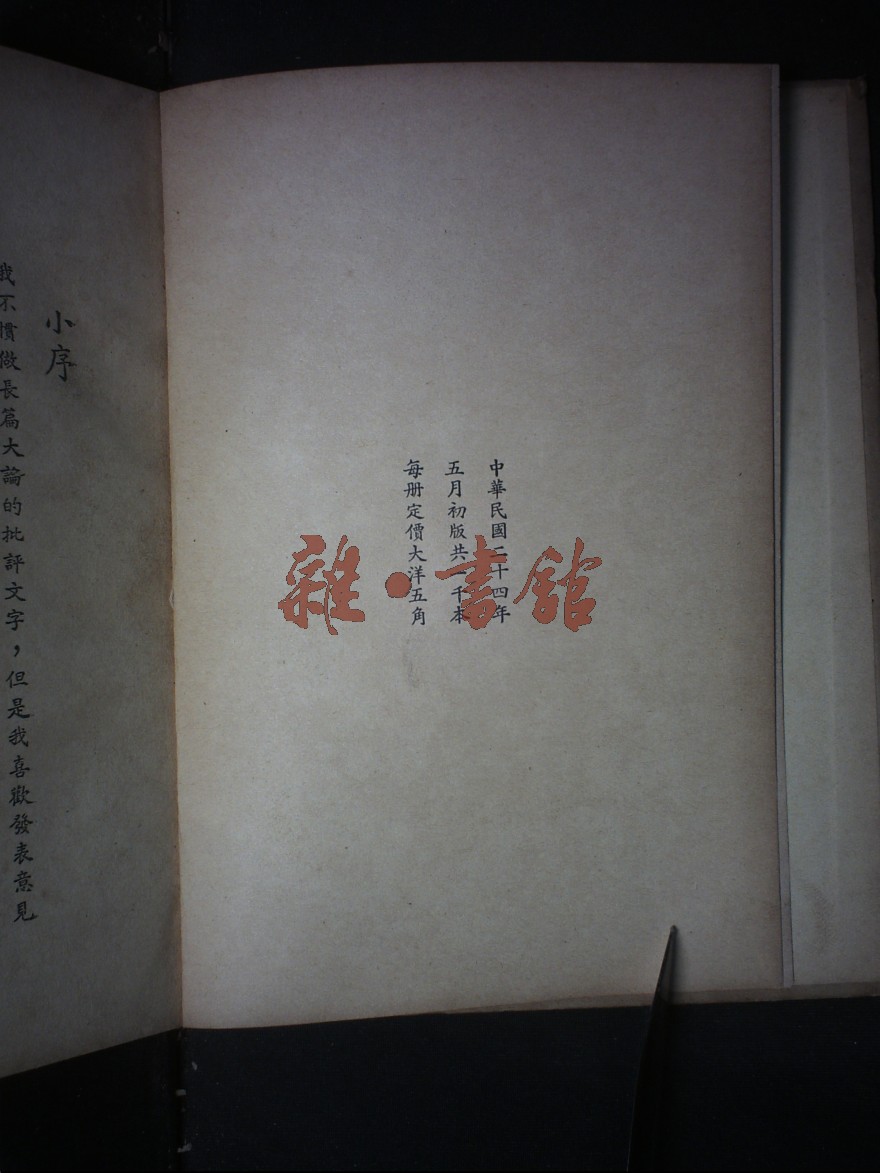 中華民國二十四年
五月初版共一千本
每册定價大洋五角
雜·書館
小序
我不慣做長篇大論的批評文字，但是我喜歡發表意見